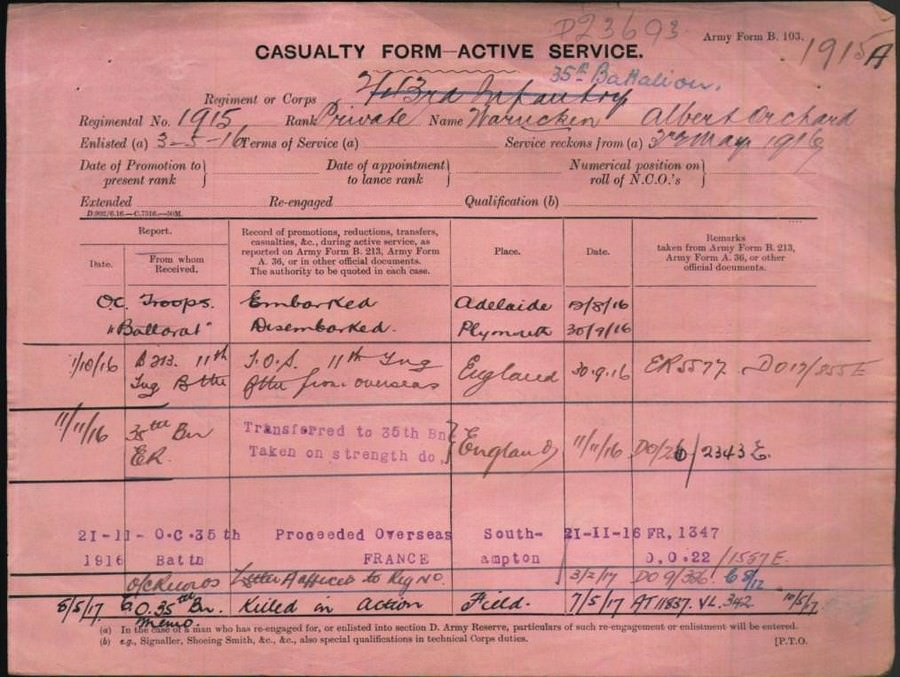 D23693
Army Form B. 103.
1915A
CASUALTY FORM—ACTIVE SERVICE.
35th Battalion.
Regiment or Corps 43rd Infantry
Regimental No. 1915 Rank Private Name Warncken Albert Orchard
Enlisted (a) 3-5-16 Terms of Service (a) Service reckons from (a) 3rd May 1916
Date of Promotion to present rank } Date of appointment to lance rank } Numerical position on roll of N.C.O.'s }
Extended Re-engaged Qualification (b)
D.902/6.16.—C.7316.—50M.
Report.
Date. From whom Received.
Record of promotions, reductions, transfers, casualties, &c., during active service, as reported on Army Form B. 213, Army Form A. 36, or in other official documents. The authority to be quoted in each case.
Place.
Date.
Remarks taken from Army Form B. 213, Army Form A. 36, or other official documents.
O.C. Troops. Embarked Adelaide /8/16
"Ballarat" Disembarked. Plymouth 30/9/16
1/10/16 B 213. 11th Trg Bttn T.O.S. 11th Trg Bttn from overseas England 30.9.16 ER 5577
11/11/16 35th Bn ER. Transferred to 35th Bn Taken on strength do. } England 11/11/16 2343 E.
21-11-1916 O.C. 35th Battn Proceeded Overseas FRANCE South-ampton 21-11-16 FR, 1347 D.O.22 /1557 E.
O/C Records Letter A affixed to Reg No. 3/2/17
5/5/17 C.O. 35th Bn. Memo. Killed in action Field. 7/5/17 AT 11837. VL. 342. 10/5/17
(a) In the case of a man who has re-engaged for, or enlisted into section D. Army Reserve, particulars of such re-engagement or enlistment will be entered.
(b) e.g., Signaller, Shoeing Smith, &c., &c., also special qualifications in technical Corps duties.
[P.T.O.